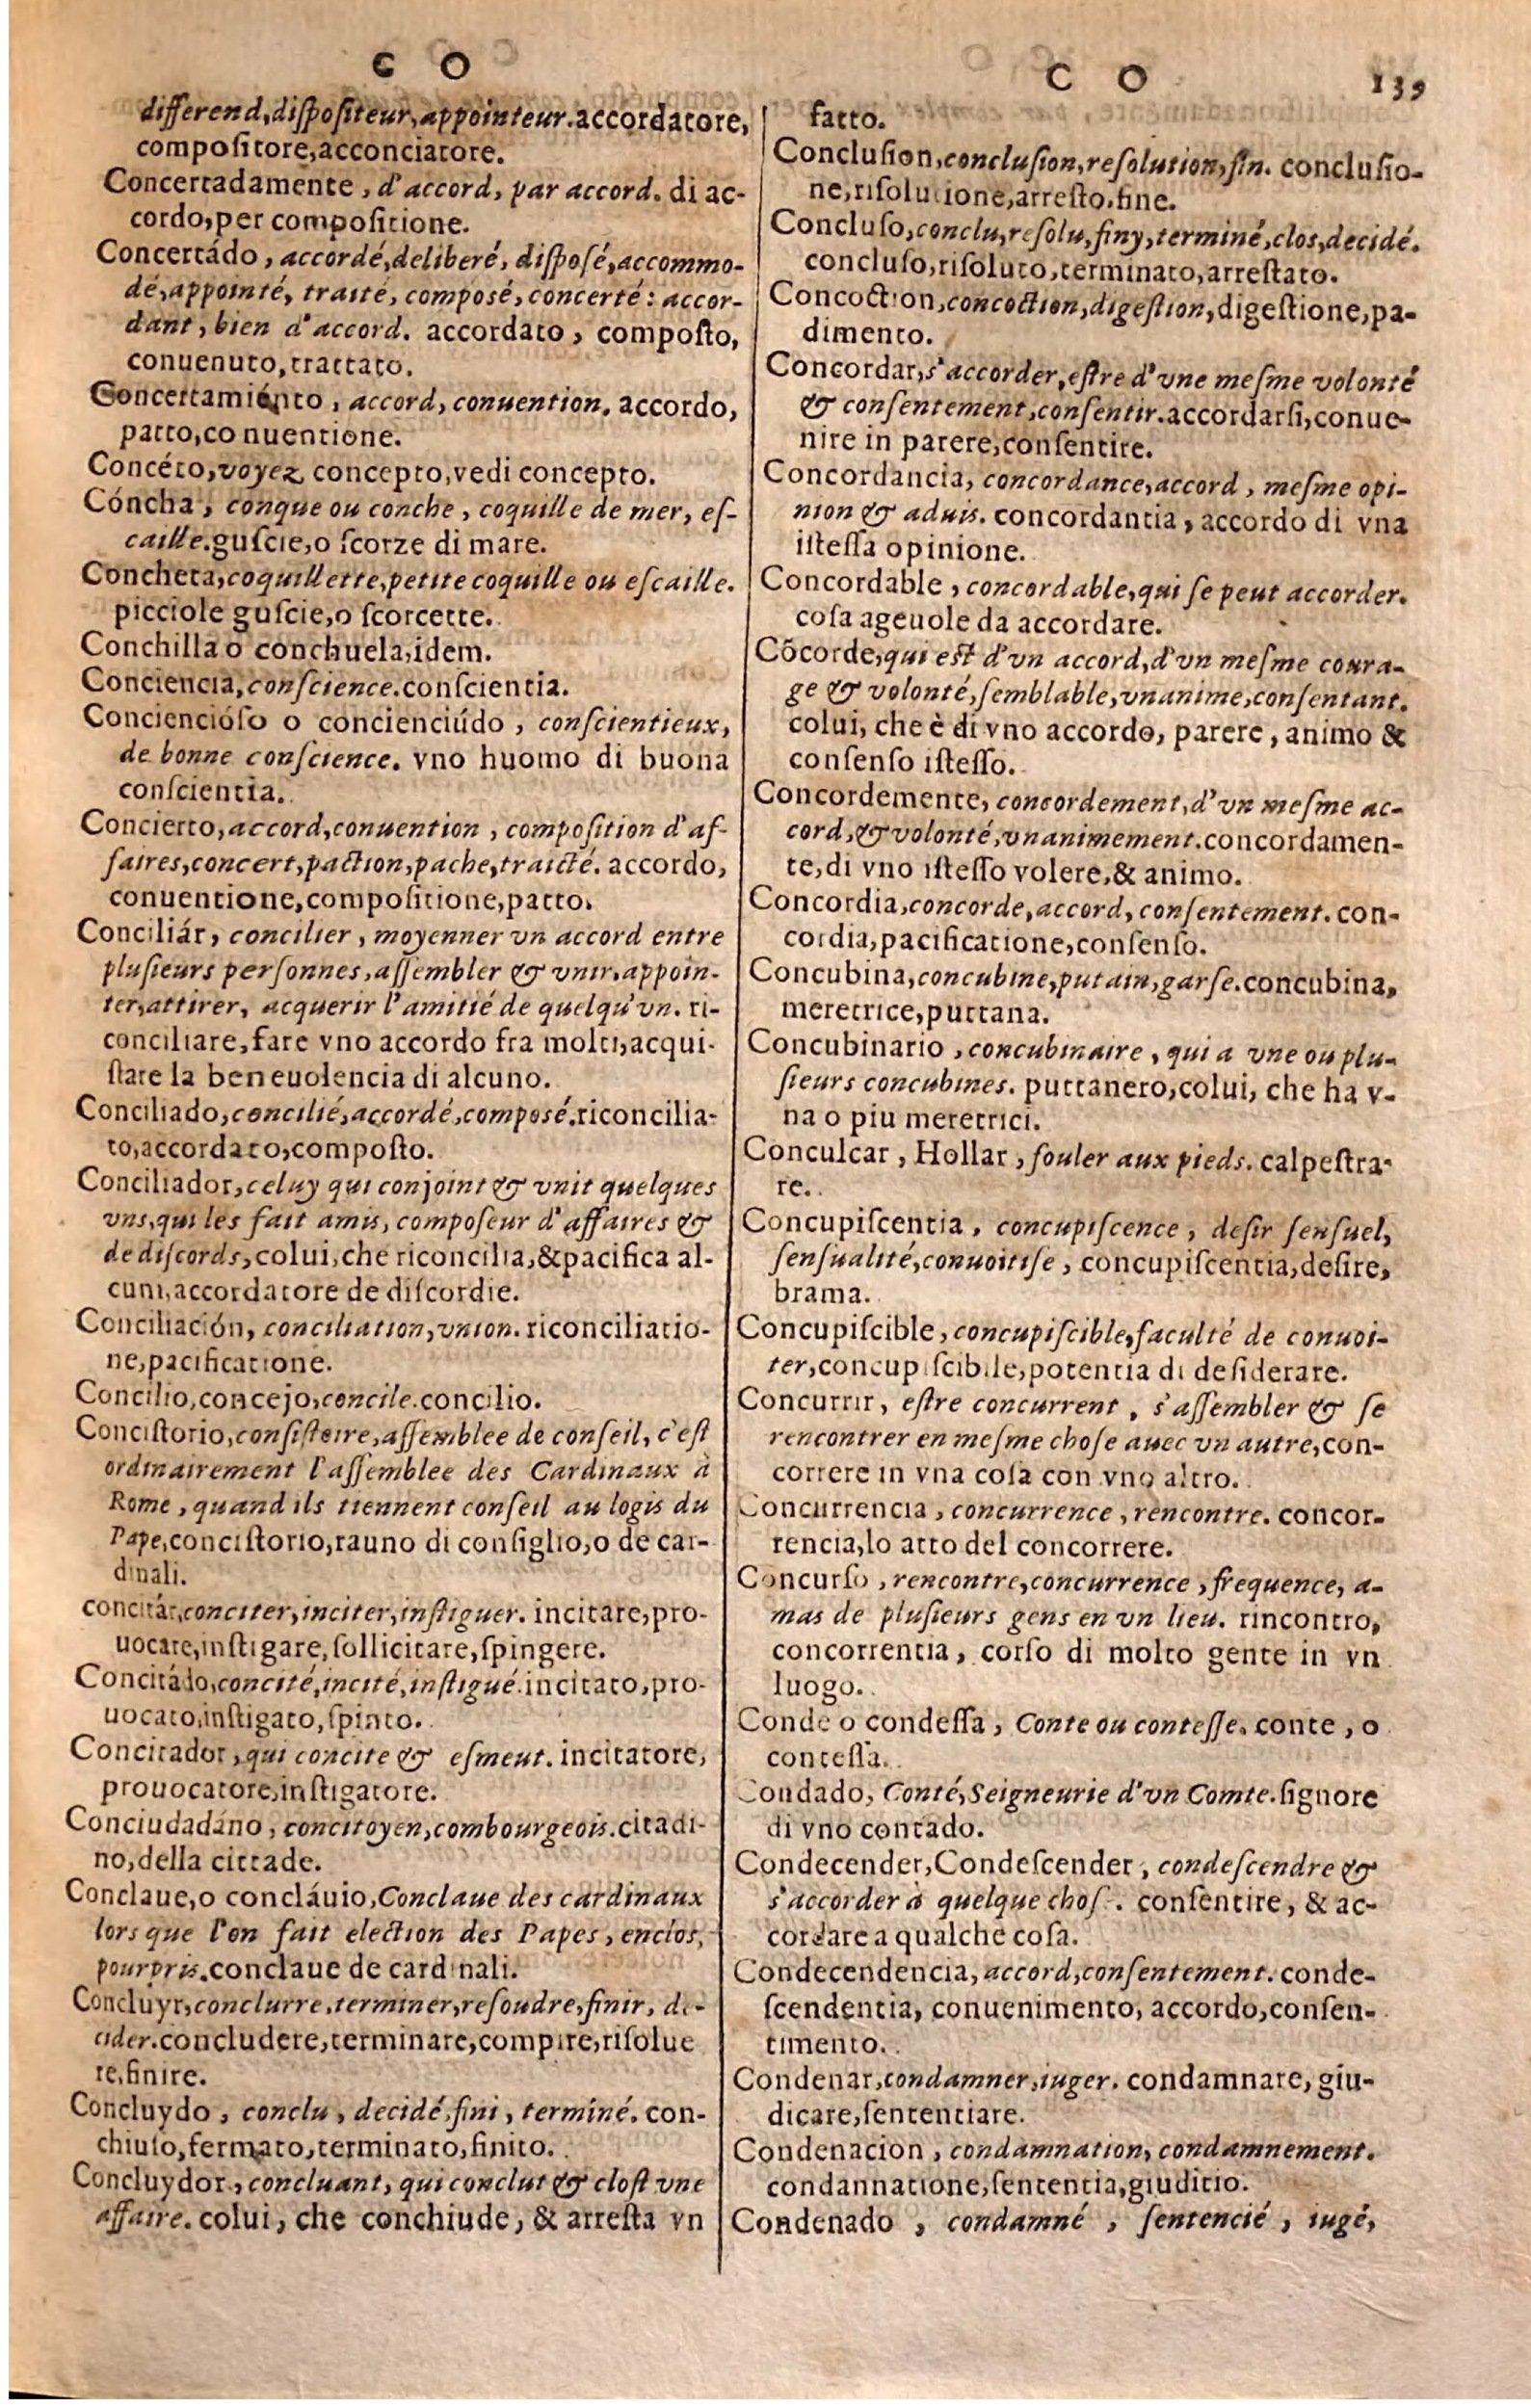 C O
differend,diſpoſiteur,appointeur.accordatore,
compoſitore,acconciatore.
Concertadamente , d'accord, par accord. di ac-
cordo,per compoſitione.
Concertádo , accordé,deliberé, diſpoſé,accommo-
dé,appointé, traité, compoſé, concerté : accor-
dant, bien d'accord. accordato , compoſto,
conuenuto,trattato.
Concertamiénto , accord, conuention. accordo,
patto,co nuentione.
Concéto,voyez concepto,vedi concepto.
Cóncha , conque ou conche , coquille de mer, eſ-
caille.guſcie,o ſcorze di mare.
Concheta,coquillette,petite coquille ou eſcaille.
picciole guſcie,o ſcorcette.
Conchilla o conchuela,idem.
Conciencia,conſcience.conſcientia.
Conciencióſo o conciencíudo , conſcientieux,
de bonne conſcience. vno huomo di buona
conſcientia.
Concierto,accord,conuention , compoſition d'af-
faires,concert,paction,pache,traicté. accordo,
conuentione,compoſitione,patto.
Conciliár, concilier , moyenner vn accord entre
pluſieurs perſonnes,aſſembler & vnir,appoin-
ter,attirer, acquerir l'amitié de quelqu'vn. ri-
conciliare,fare vno accordo fra molti,acqui-
ſtare la beneuolencia di alcuno.
Conciliado,concilié,accordé,compoſé.riconcilia-
to,accordato,compoſto.
Conciliador,celuy qui conjoint & vnit quelques
vns,qui les fait amis, compoſeur d'affaires &
de diſcords,colui,che riconcilia,&pacifica al-
cuni,accordatore de diſcordie.
Conciliación, conciliation,vnion. riconciliatio-
ne,pacificatione.
Concilio,concejo,concile.concilio.
Conciſtorio,conſiſtoire,aſſemblee de conſeil, c'eſt
ordinairement l'aſſemblee des Cardinaux à
Rome , quand ils tiennent conſeil au logis du
Pape,conciſtorio,rauno di conſiglio,o de car-
dinali.
concitár,conciter,inciter,inſtiguer. incitare,pro-
uocare,inſtigare,ſollicitare,ſpingere.
Concitádo,concité,incité,inſtigué.incitato,pro-
uocato,inſtigato,ſpinto.
Concitador ,qui concite & eſmeut. incitatore,
prouocatore,inſtigatore.
Conciudadáno , concitoyen,combourgeois.citadi-
no,della cittade.
Conclaue,o concláuio,Conclaue des cardinaux
lors que l'on fait election des Papes, enclos,
pourpris.conclaue de cardinali.
Concluyr,conclurre,terminer,reſoudre,finir, de-
cider.concludere,terminare,compire,riſolue
re,finire.
Concluydo , conclu , decidé,fini , terminé. con-
chiuſo,fermato,terminato,finito.
Concluydor , concluant, qui conclut & cloſt vne
affaire. colui, che conchiude, & arreſta vn
C O 139
fatto.
Concluſion,concluſion,reſolution,fin. concluſio-
ne,riſolutione,arreſto,fine.
Concluſo,conclu,reſolu,finy,terminé,clos,decidé.
concluſo,riſoluto,terminato,arreſtato.
Concoction,concoction,digeſtion,digeſtione,pa-
dimento.
Concordar,s'accorder,eſtre d'vne meſme volonté
& conſentement,conſentir.accordarſi,conue-
nire in parere,conſentire.
Concordancia, concordance,accord , meſme opi-
nion & aduis. concordantia , accordo di vna
iſteſſa opinione.
Concordable , concordable,qui ſe peut accorder.
coſa ageuole da accordare.
Cõcorde,qui eſt d'vn accord,d'vn meſme coura-
ge & volonté,ſemblable,vnanime,conſentant.
colui, che è di vno accordo, parere , animo &
conſenſo iſteſſo.
Concordemente, concordement,d'vn meſme ac-
cord,& volonté,vnanimement.concordamen-
te,di vno iſteſſo volere,& animo.
Concordia,concorde,accord,conſentement. con-
cordia,pacificatione,conſenſo.
Concubina,concubine,putain,garſe.concubina,
meretrice,puttana.
Concubinario , concubinaire , qui a vne ou plu-
ſieurs concubines. puttanero,colui, che ha v-
na o piu meretrici.
Conculcar , Hollar , fouler aux pieds. calpeſtra-
re.
Concupiſcentia , concupiſcence , deſir ſenſuel,
ſenſualité,conuoitiſe , concupiſcentia,deſire,
brama.
Concupiſcible, concupiſcible,faculté de conuoi-
ter,concupiſcibile,potentia di deſiderare.
Concurrir, eſtre concurrent , s'aſſembler & ſe
rencontrer en meſme choſe auec vn autre,con-
correre in vna coſa con vno altro.
Concurrencia , concurrence , rencontre. concor-
rencia,lo atto del concorrere.
Concurſo , rencontre,concurrence , frequence, a-
mas de pluſieurs gens en vn lieu. rincontro,
concorrentia , corſo di molto gente in vn
luogo.
Conde o condeſſa , Conte ou conteſſe. conte , o
conteſſa.
Condado, Conté,Seigneurie d'vn Comte.ſignore
di vno contado.
Condecender,Condeſcender , condeſcendre &
s'accorder à quelque choſ . conſentire, & ac-
cordare a qualche coſa.
Condecendencia, accord,conſentement. conde-
ſcendentia, conuenimento, accordo,conſen-
timento.
Condenar,condamner,iuger. condamnare, giu-
dicare,ſententiare.
Condenacion , condamnation, condamnement.
condannatione,ſententia,giuditio.
Condenado , condamné , ſentencié , iugé,